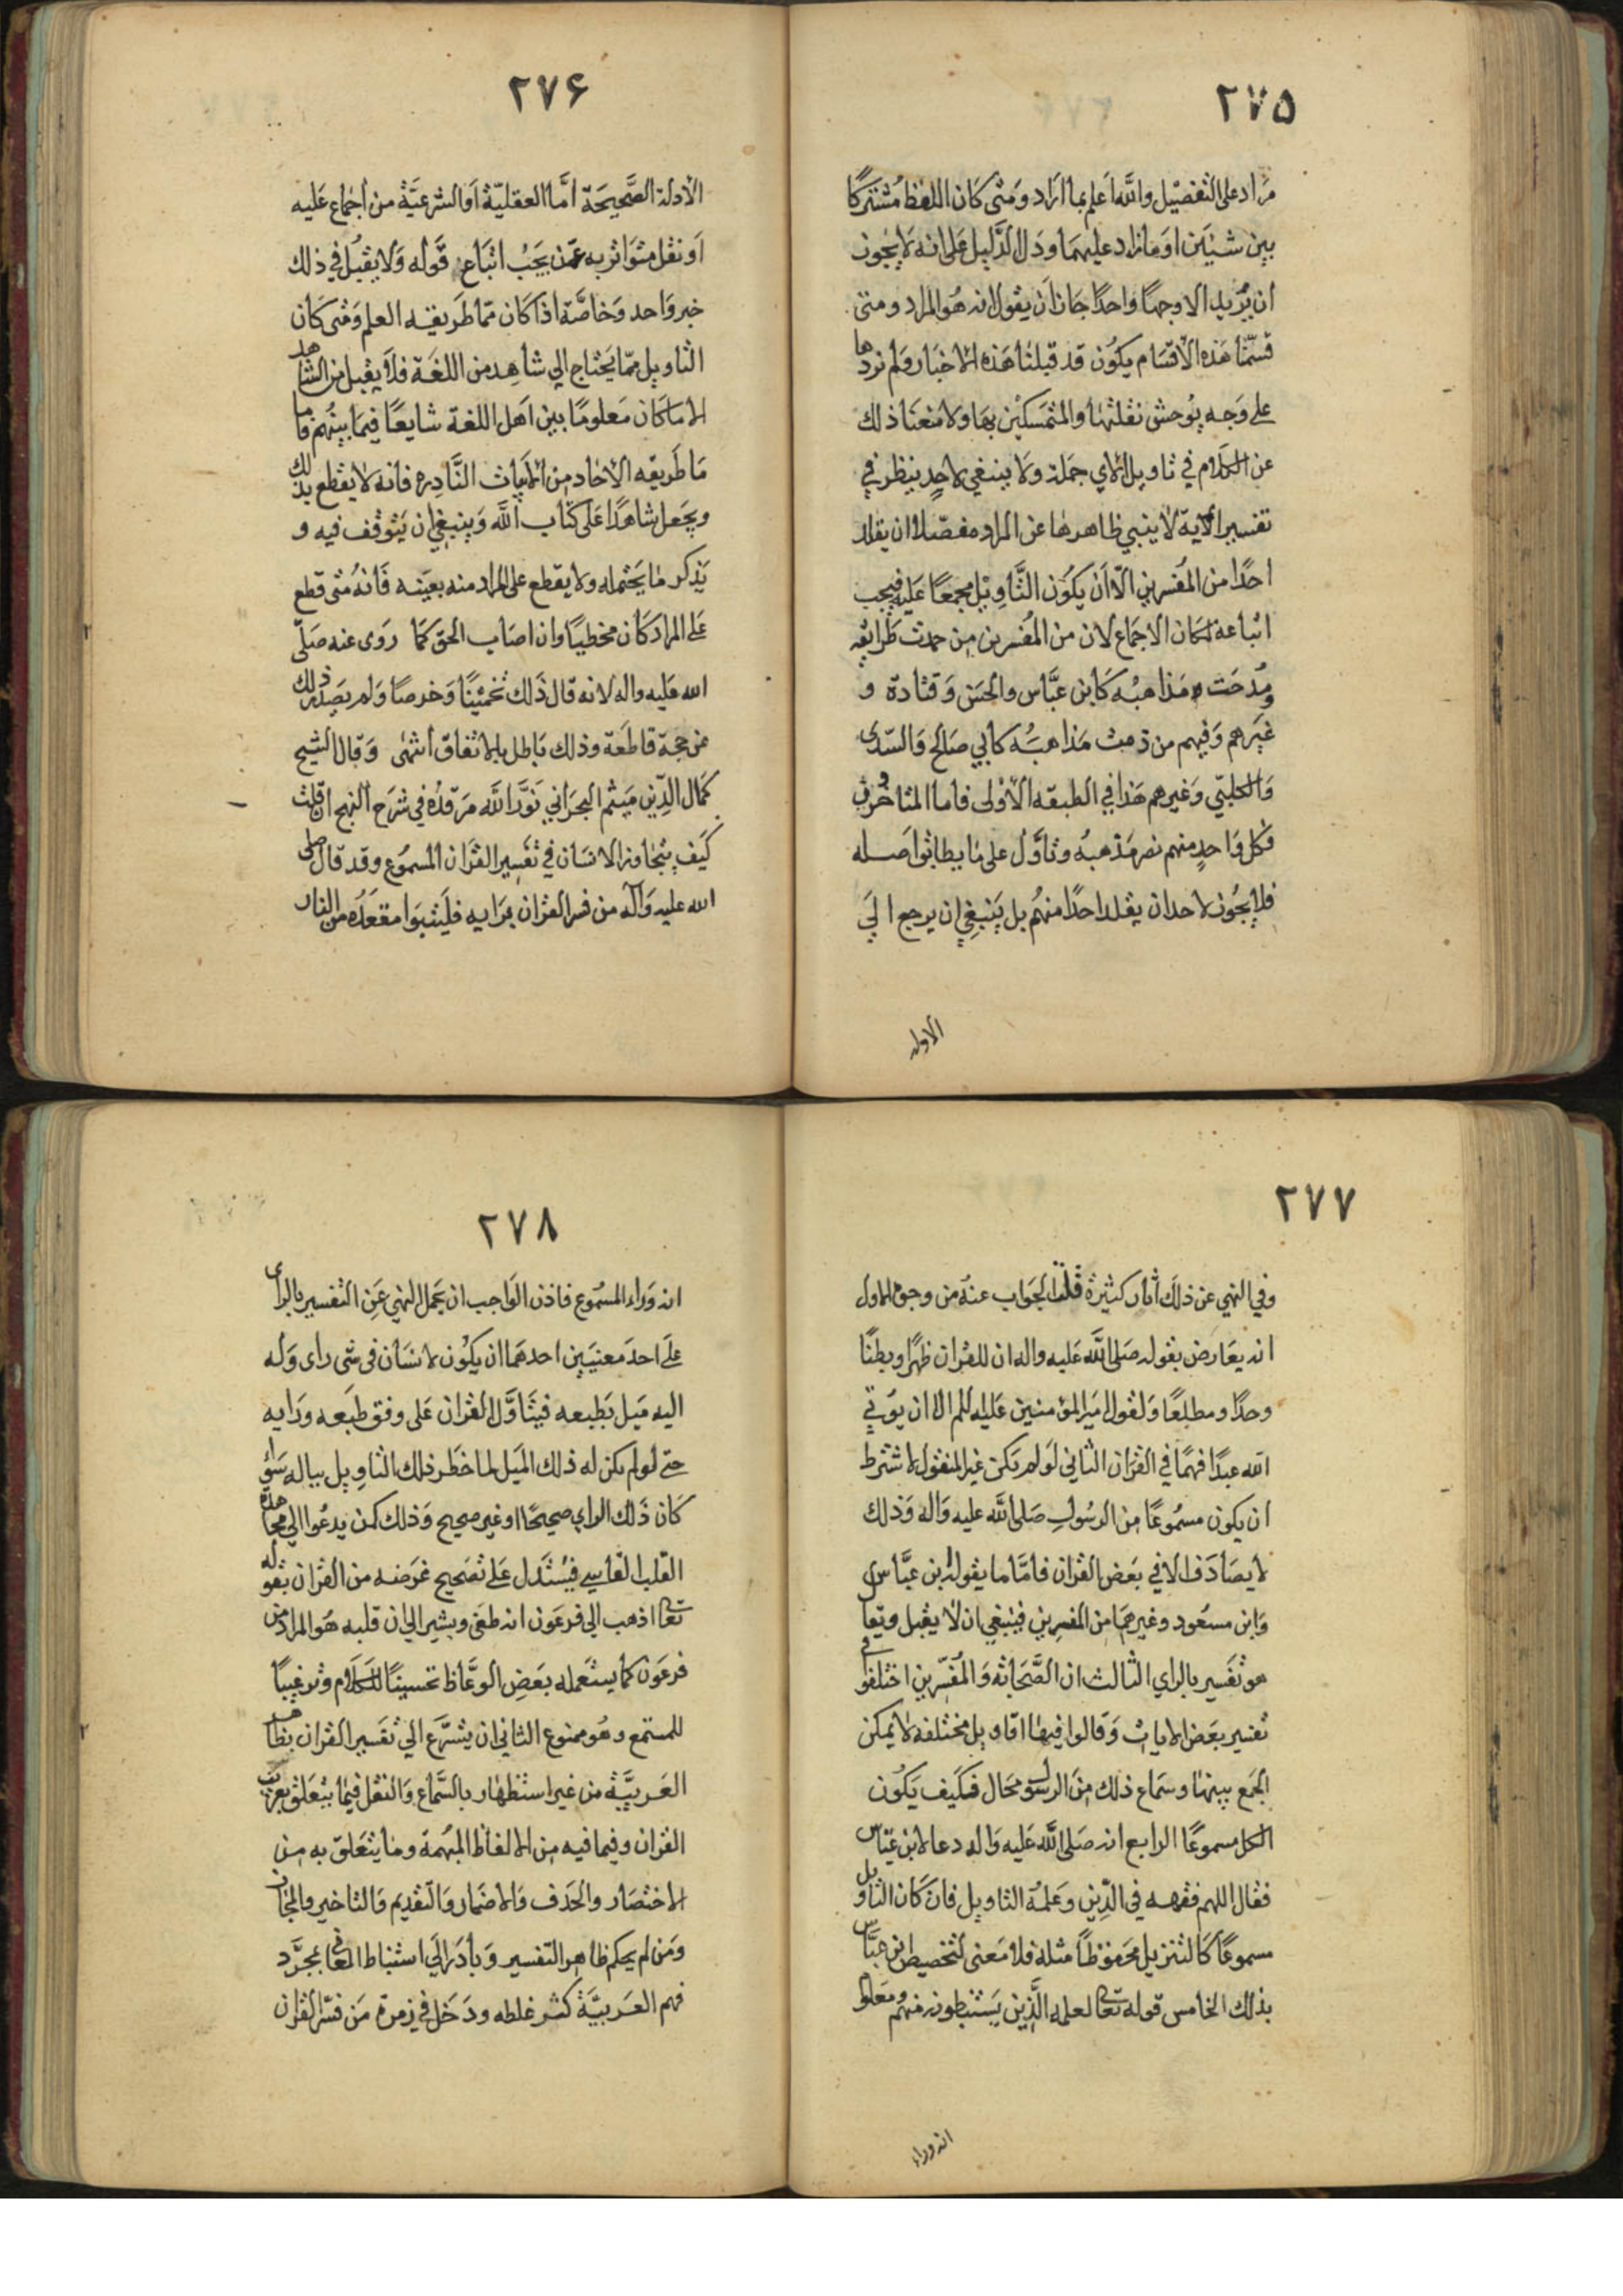 ٢٧۵
مراد على التفصيل والله اعلم بما اراد ومتى كان اللفظ مشتركا
بين شيئين او مازاد عليهما ودل الدليل على انه لا يجوز
ان يريد الا وجها واحدا جاز ان يقول انه هو المراد ومتى
قسمنا هذه الاقسام يكون قد قبلنا هذه الاخبار ولم نردها
على وجه يوحش نقلتها والمتمسكين بها ولا منعنا ذلك
عن الكلام في تاويل الاي جملة ولا ينبغي لاحد ينظر في
تفسير الاية لا ينبي ظاهرها عن المراد مفصلا ان يقلد
احدا من المفسرين الا ان يكون التاويل مجمعا عليه فيجب
اتباعه لمكان الاجماع لان من المفسرين من حمدت طرايقه
ومدحت مذاهبه كابن عباس والحسن وقتادة و
غيرهم وفيهم من ذمت مذاهبه كابي صالح والسدى
والكلبي وغيرهم هذا في الطبقه الاولى فاما المتاخرون
فكل واحد منهم نصر مذهبه وتاول على ما يطابق اصله
فلا يجوز لاحد ان يقلد احدا منهم بل ينبغي ان يرجع الي
الادلة
٢٧۶
الادلة الصحيحة اما العقلية او الشرعية من اجماع عليه
او نقل متواتر به عمن يجب اتباع قوله ولا يقبل في ذلك
خبر واحد وخاصة اذا كان مما طريقه العلم ومتى كان
التاويل مما يحتاج الي شاهد من اللغة فلا يقبل من الشاهد
الا ما كان معلوما بين اهل اللغة شايعا فيما بينهم فاما
ما طريقه الاحاد من الابيات النادره فانه لا يقطع بذلك
ويجعل شاهدا على كتاب الله وينبغي ان يتوقف فيه و
يذكر ما يحتمله ولا يقطع على المراد منه بعينه فانه متى قطع
على المراد كان مخطيا وان اصاب الحق كما روى عنه صلى
الله عليه واله لانه قال ذلك تخمينا وخرصا ولم يصدر ذلك
عن حجة قاطعة وذلك باطل بالاتفاق انتهى وقال الشيخ
كمال الدين ميثم البحراني نور الله مرقده في شرح النهج ان قلت
كيف يتجاوز الانسان في تفسير القران المسموع وقد قال صلى
الله عليه وآله من فسر القران برايه فليتبوا مقعده من النار
٢٧٧
وفي النهي عن ذلك آثار كثيرة قلنا الجواب عنه من وجوه الاول
انه يعارض بقوله صلى الله عليه واله ان للقران ظهرا وبطنا
وحدا ومطلعا ولقول امير المؤمنين عليه السلم الا ان يؤتي
الله عبدا فهما في القران الثاني لو لم يكن غير المنقول لاشترط
ان يكون مسموعا من الرسول صلى الله عليه واله وذلك
لا يصادف الا في بعض القران فاما ما يقوله ابن عباس
وابن مسعود وغيرهما من المفسرين فينبغي ان لا يقبل ويقا
هو تفسير بالراي الثالث ان الصحابه والمفسرين اختلفوا في
تفسير بعض الايات وقالوا فيها اقاويل مختلفه لا يمكن
الجمع بينها وسماع ذلك من الرسول محال فكيف يكون
الكل مسموعا الرابع انه صلى الله عليه واله دعا لابن عباس
فقال اللهم فقهه في الدين وعلمه التاويل فان كان التاويل
مسموعا كالتنزيل محفوظا مثله فلا معنى لتخصيص ابن عباس
بذلك الخامس قوله تعالى لعلمه الذين يستنبطونه منهم ومعلوم
انه وراء
٢٧٨
انه وراء المسموع فاذن الواجب ان يحمل النهي عن التفسير بالراى
على احد معنيين احدهما ان يكون لانسان في شى راى وله
اليه ميل بطبعه فيتاول القران على وفق طبعه ورايه
حتى لو لم يكن له ذلك الميل لما خطر ذلك التاويل بباله سواء
كان ذلك الراي صحيحا او غير صحيح وذلك كمن يدعوا الي مجاهدة
القلب القاسي فيستدل على تصحيح غرضه من القران بقوله
تعالى اذهب الي فرعون انه طغى ويشير الى ان قلبه هو المراد من
فرعون كما يستعمله بعض الوعاظ تحسينا للكلام وترغيبا
للمستمع وهو ممنوع الثاني ان يتسرع الي تفسير القران بظاهر
العربية من غير استظهار بالسماع والنقل فيما يتعلق بغريب
القران وفيما فيه من الالفاظ المبهمة وما يتعلق به من
الاختصار والحذف والاضمار والتقديم والتاخير والمجاز
ومن لم يحكم ظاهر التفسير وبادر الي استنباط المعانى بمجرد
فهم العربية كثر غلطه ودخل في زمرة من فسر القران